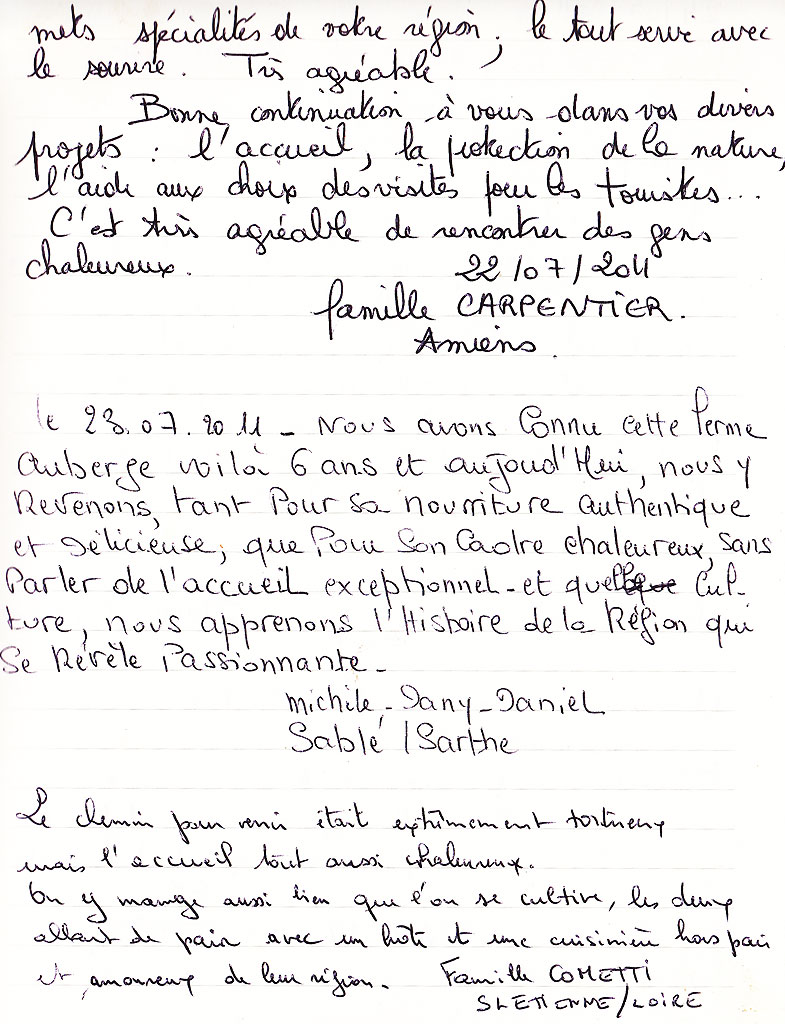 mets spécialités de votre région, le tout servi avec
le sourire. Très agréable.
Bonne continuation à vous dans vos divers
projets : l'accueil, la protection de la nature,
l'aide aux choix des visites pour les touristes...
C'est très agréable de rencontrer des gens
chaleureux. 22/07/2011
famille CARPENTIER.
Amiens.
le 23.07.2011 - Nous avons Connu cette Ferme
Auberge voilà 6 ans et aujourd'Hui, nous y
Revenons, tant Pour sa nourriture authentique
et Délicieuse, que Pour Son Cadre chaleureux, sans
Parler de l'accueil exceptionnel - et quelle Cul-
ture, nous apprenons l'Histoire de la Région qui
Se Révèle Passionnante -
michèle, Dany - Daniel
Sablé / Sarthe
Le chemin pour venir était extrêmement tortueux
mais l'accueil tout aussi chaleureux.
On y mange aussi bien que l'on se cultive, les deux
allant de pair avec un hôte et une cuisinière hors pair
et amoureux de leur région. Famille COMETTI
St ETIENNE/LOIRE